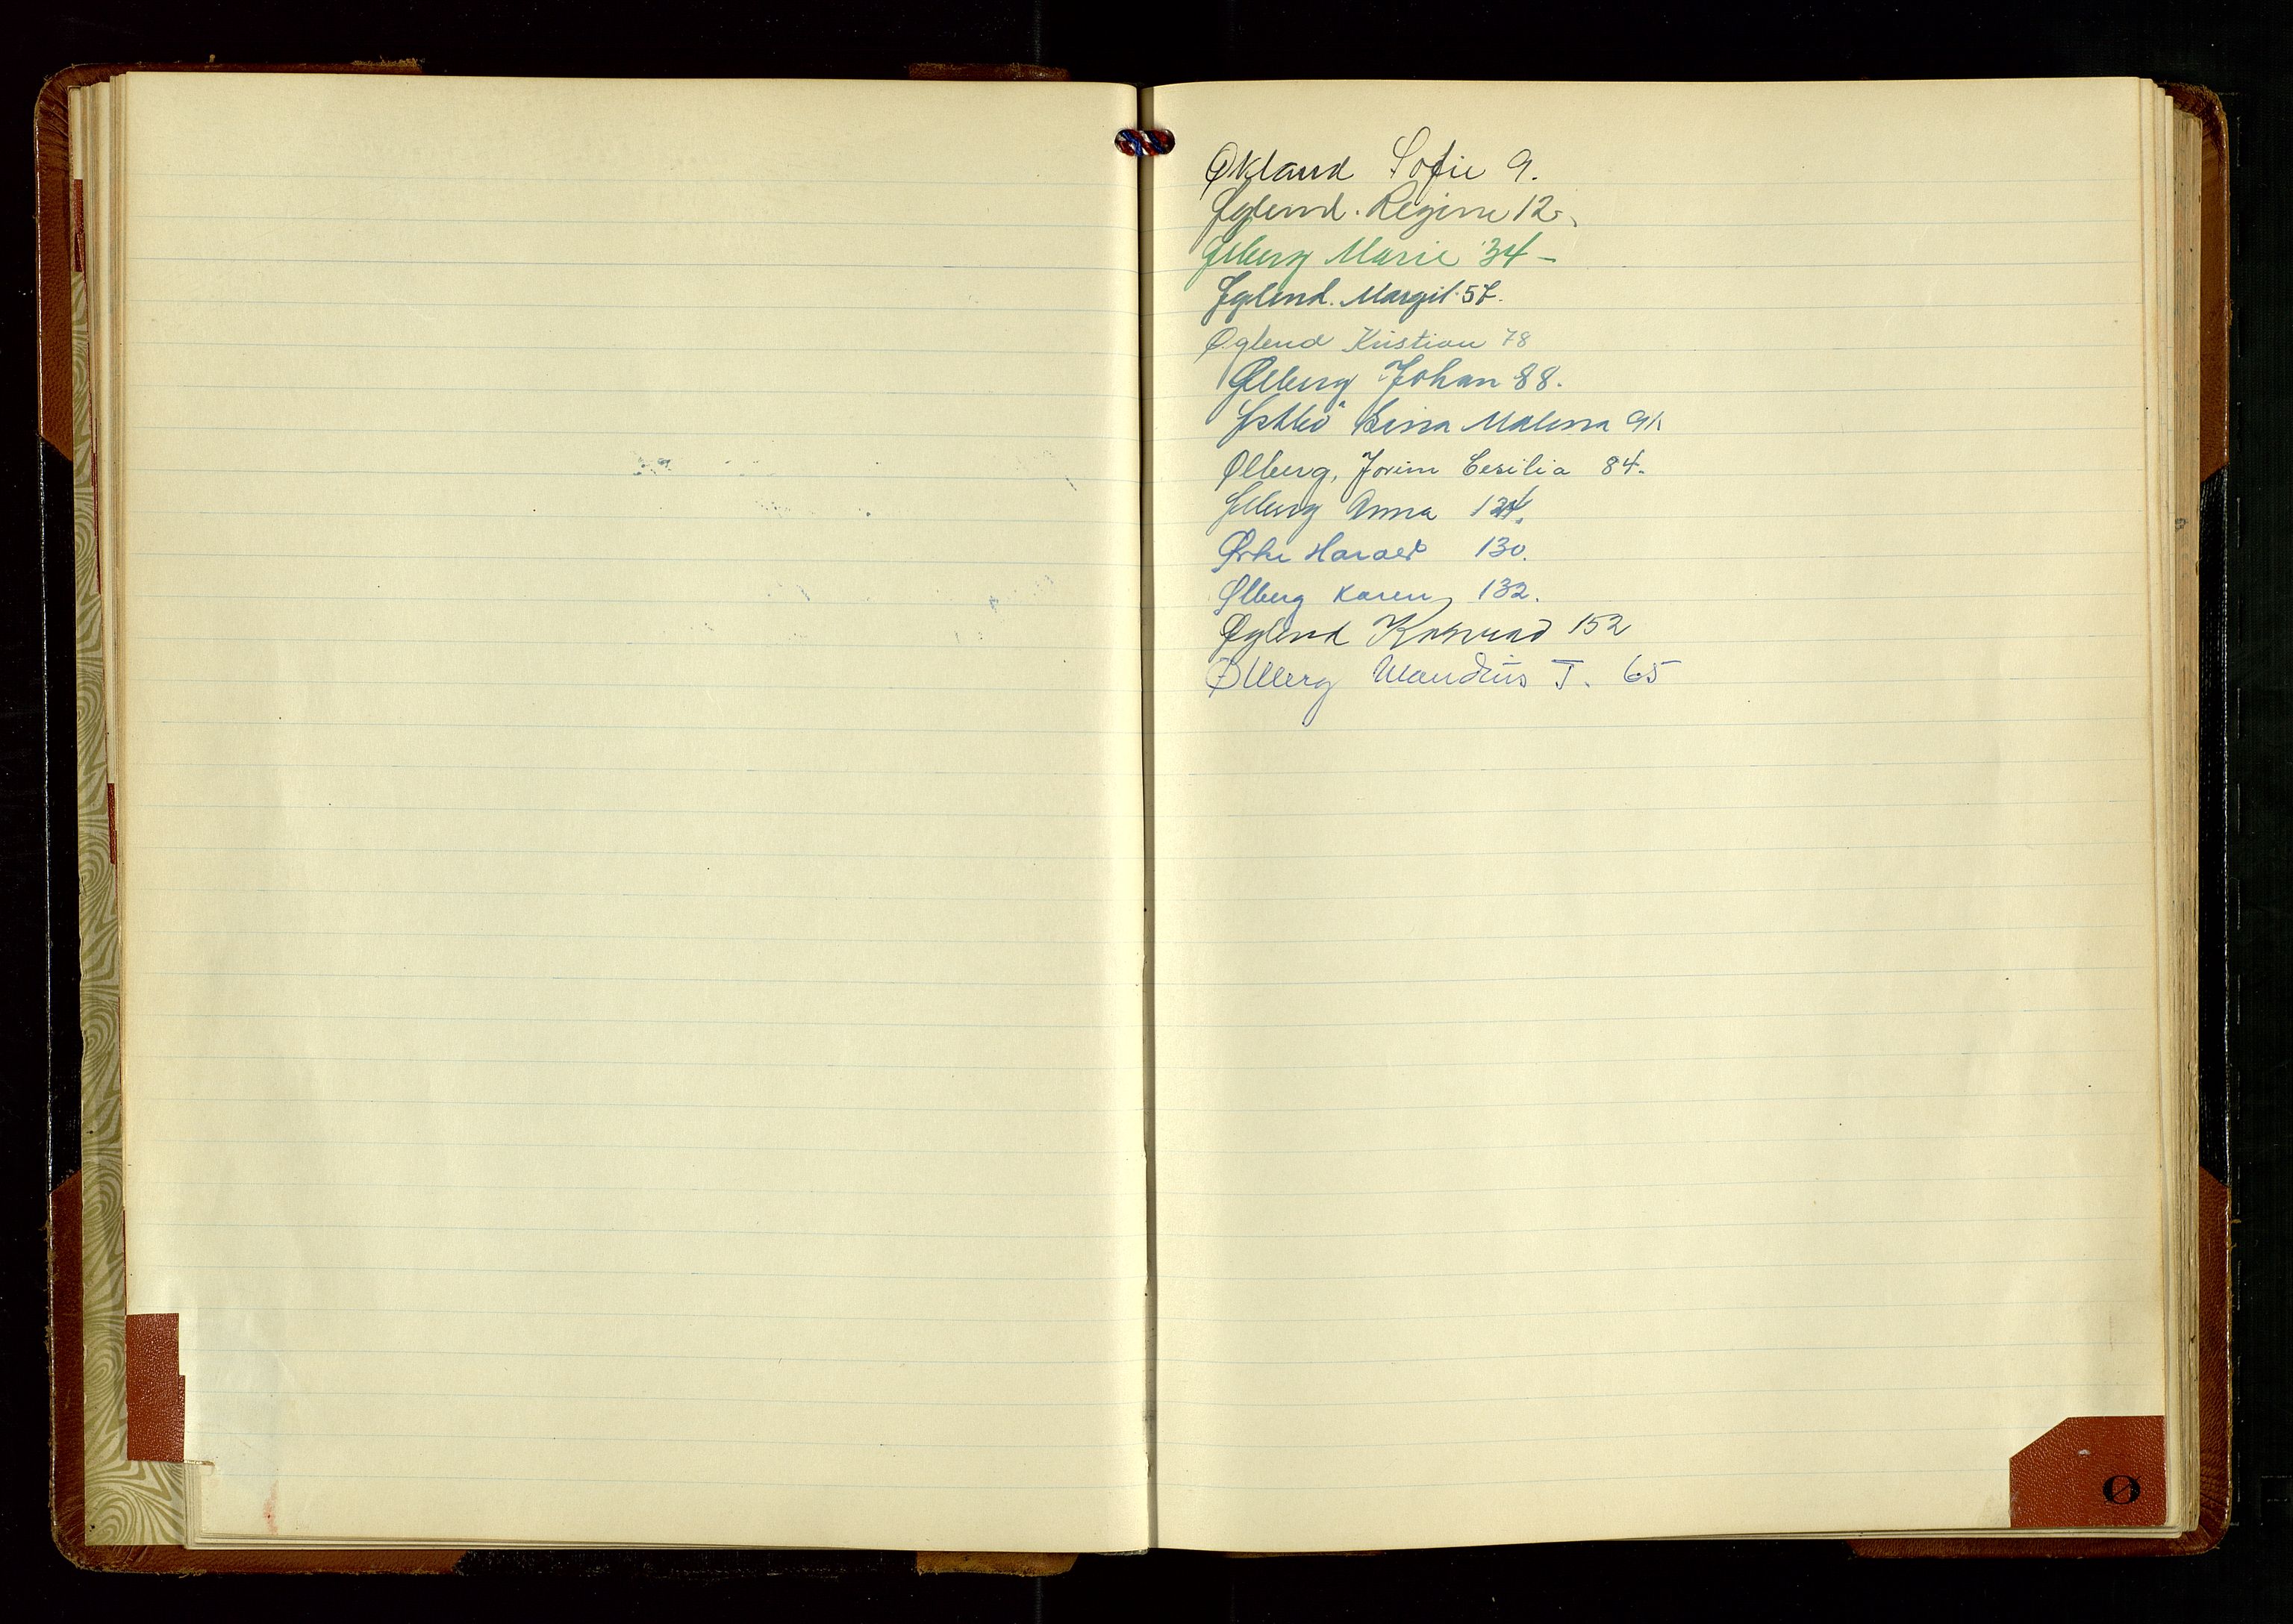 Økland Sofie 9.
Øglend. Regine 12.
Ølberg Marie 34 -
Øglend. Margit. 57.
Øglend Kristian 78
Ølberg Johan 88.
Malena 91.
Ølberg, Jorim Cesilia 84.
Ølberg Anna 124.
Ørke Harald 130.
Ølberg Karen, 132.
Øglend Konrad 152
Ølberg Maudius T. 65
Ø